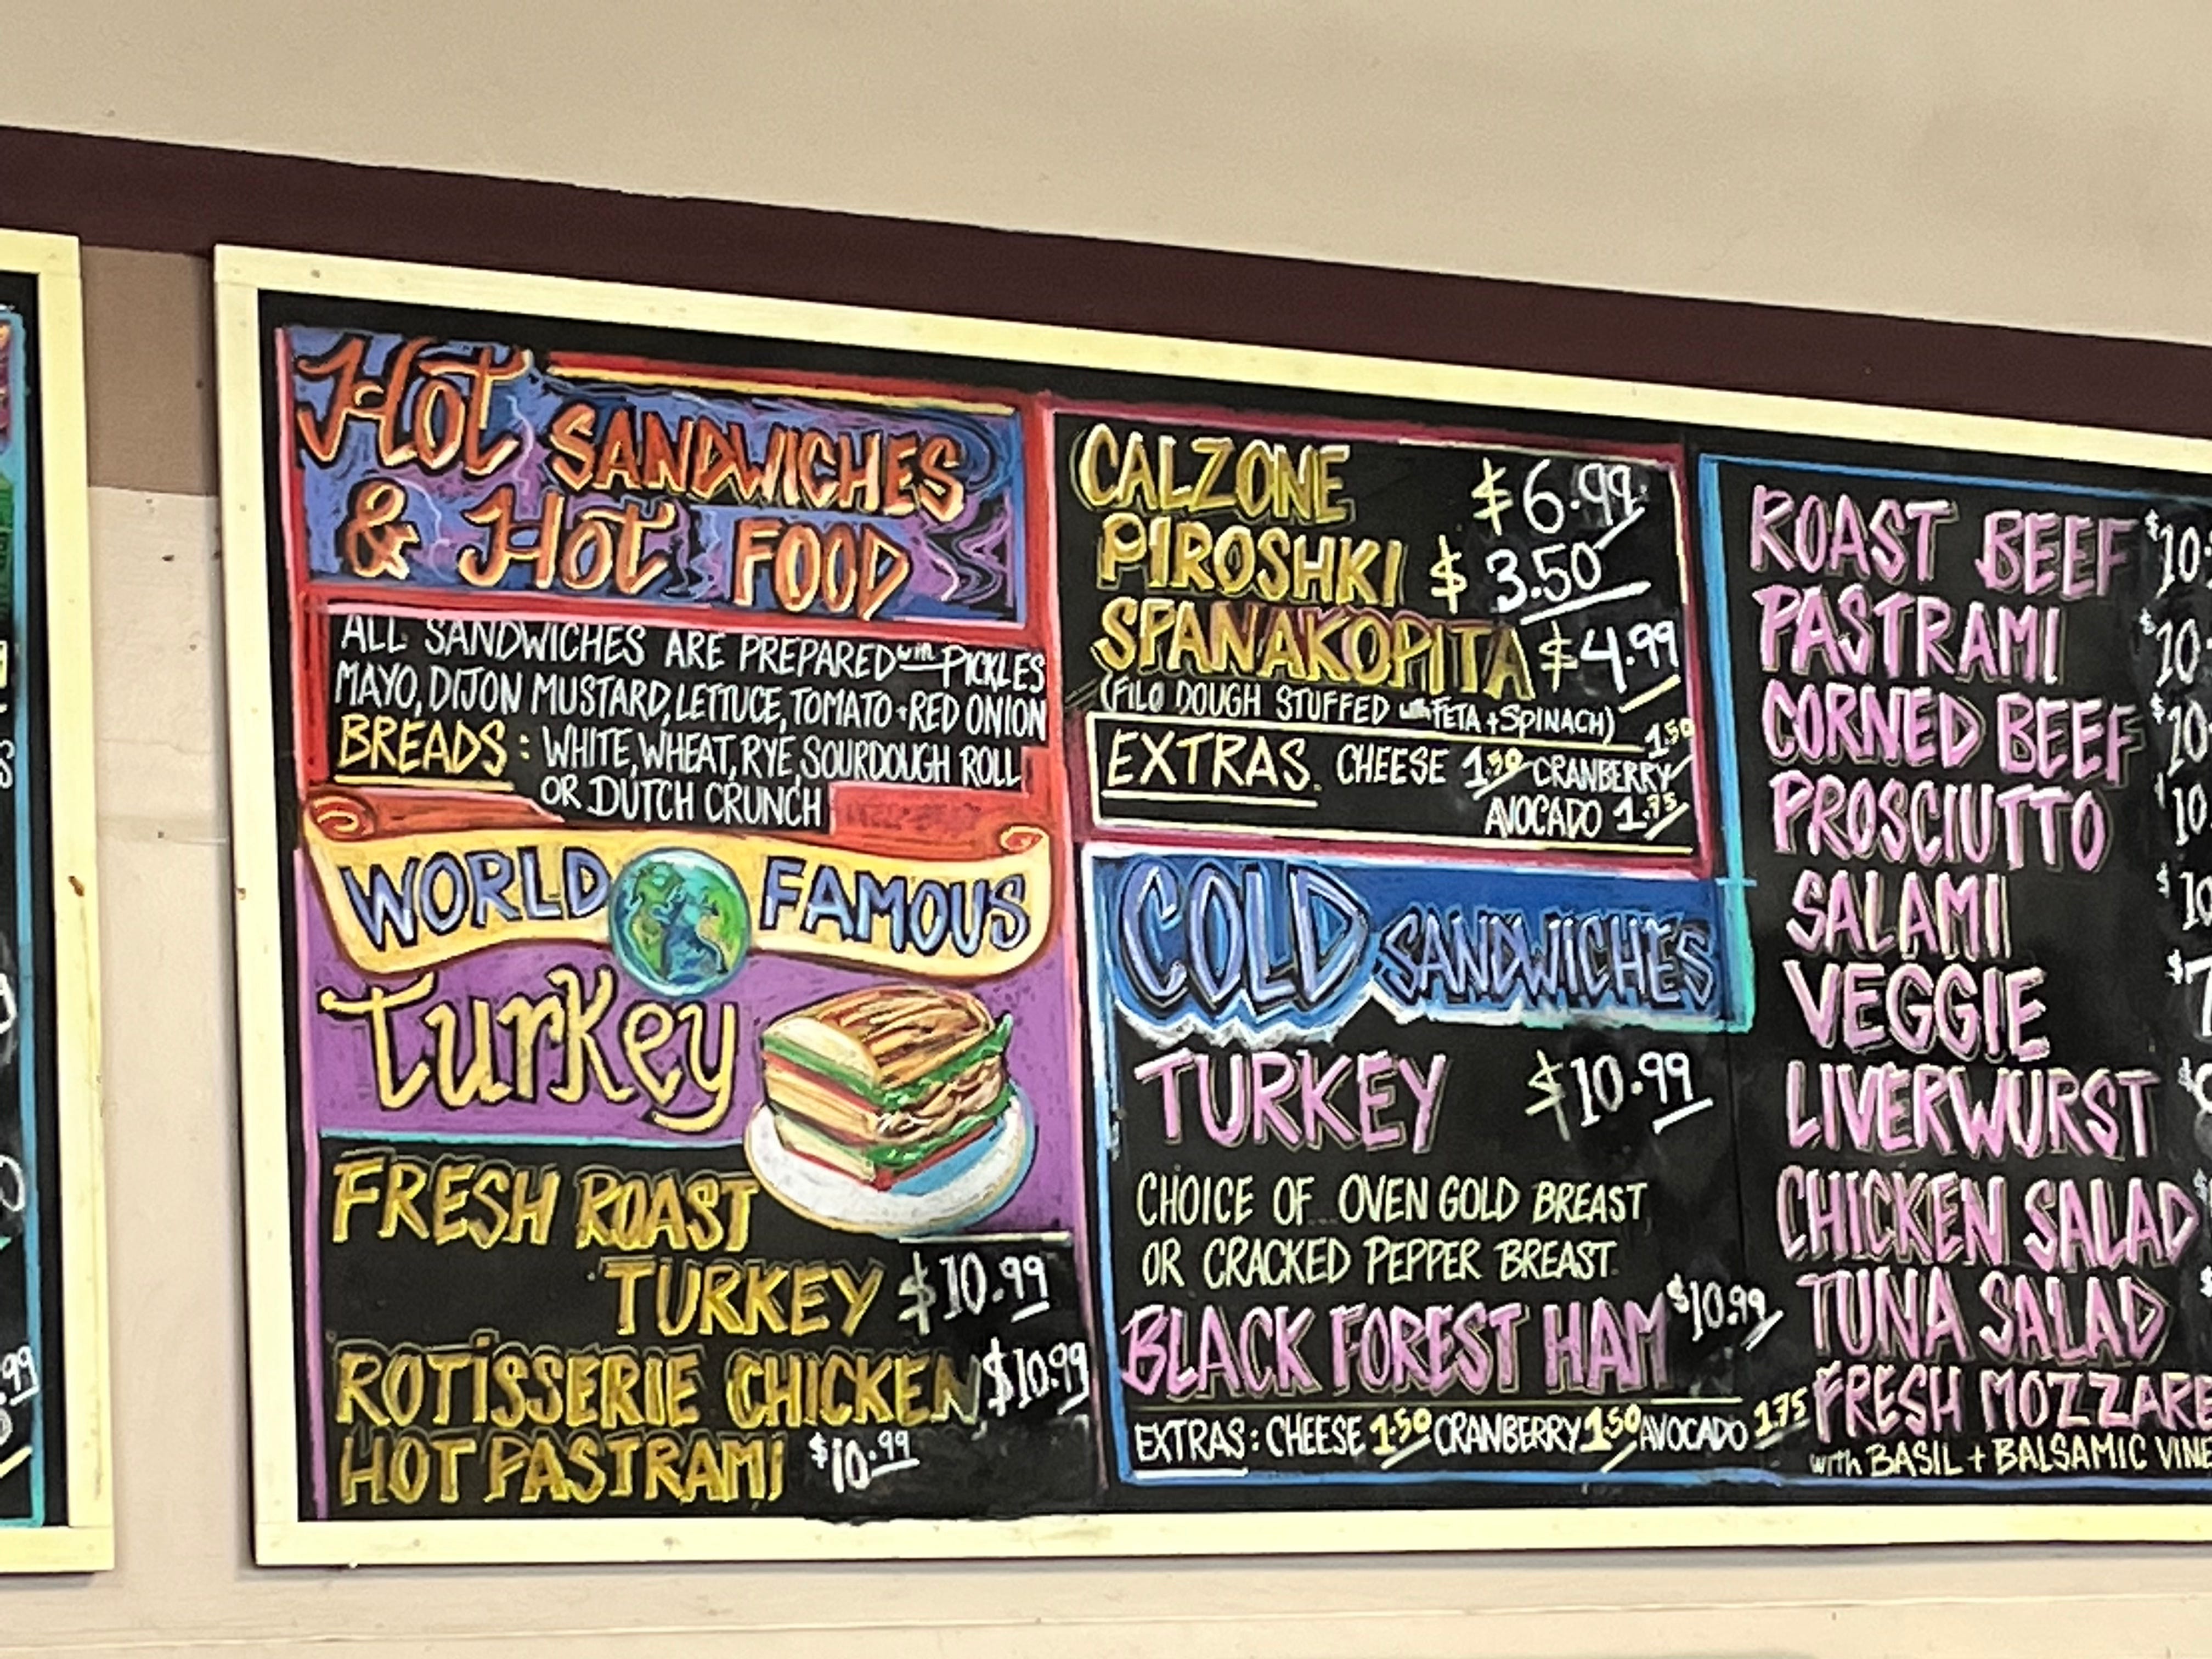 Hot SANDWICHES
& Hot FOOD
ALL SANDWICHES ARE PREPARED with PICKLES
MAYO, DIJON MUSTARD, LETTUCE, TOMATO + RED ONION
BREADS: WHITE, WHEAT, RYE, SOURDOUGH ROLL
OR DUTCH CRUNCH
WORLD FAMOUS
Turkey
FRESH ROAST
TURKEY $10.99
ROTISSERIE CHICKEN $10.99
HOT PASTRAMI $10.99
CALZONE $6.99
PIROSHKI $3.50
SPANAKOPITA $4.99
(FILO DOUGH STUFFED with FETA + SPINACH)
EXTRAS. CHEESE 1.50 CRANBERRY 1.50
AVOCADO 1.75
COLD SANDWICHES
TURKEY $10.99
CHOICE OF OVEN GOLD BREAST
OR CRACKED PEPPER BREAST
BLACK FOREST HAM $10.99
EXTRAS: CHEESE 1.50 CRANBERRY 1.50 AVOCADO 1.75
ROAST BEEF $10
PASTRAMI $10
CORNED BEEF $10
PROSCIUTTO $10
SALAMI $10
VEGGIE
LIVERWURST
CHICKEN SALAD
TUNA SALAD
FRESH MOZZARE
with BASIL + BALSAMIC VINE